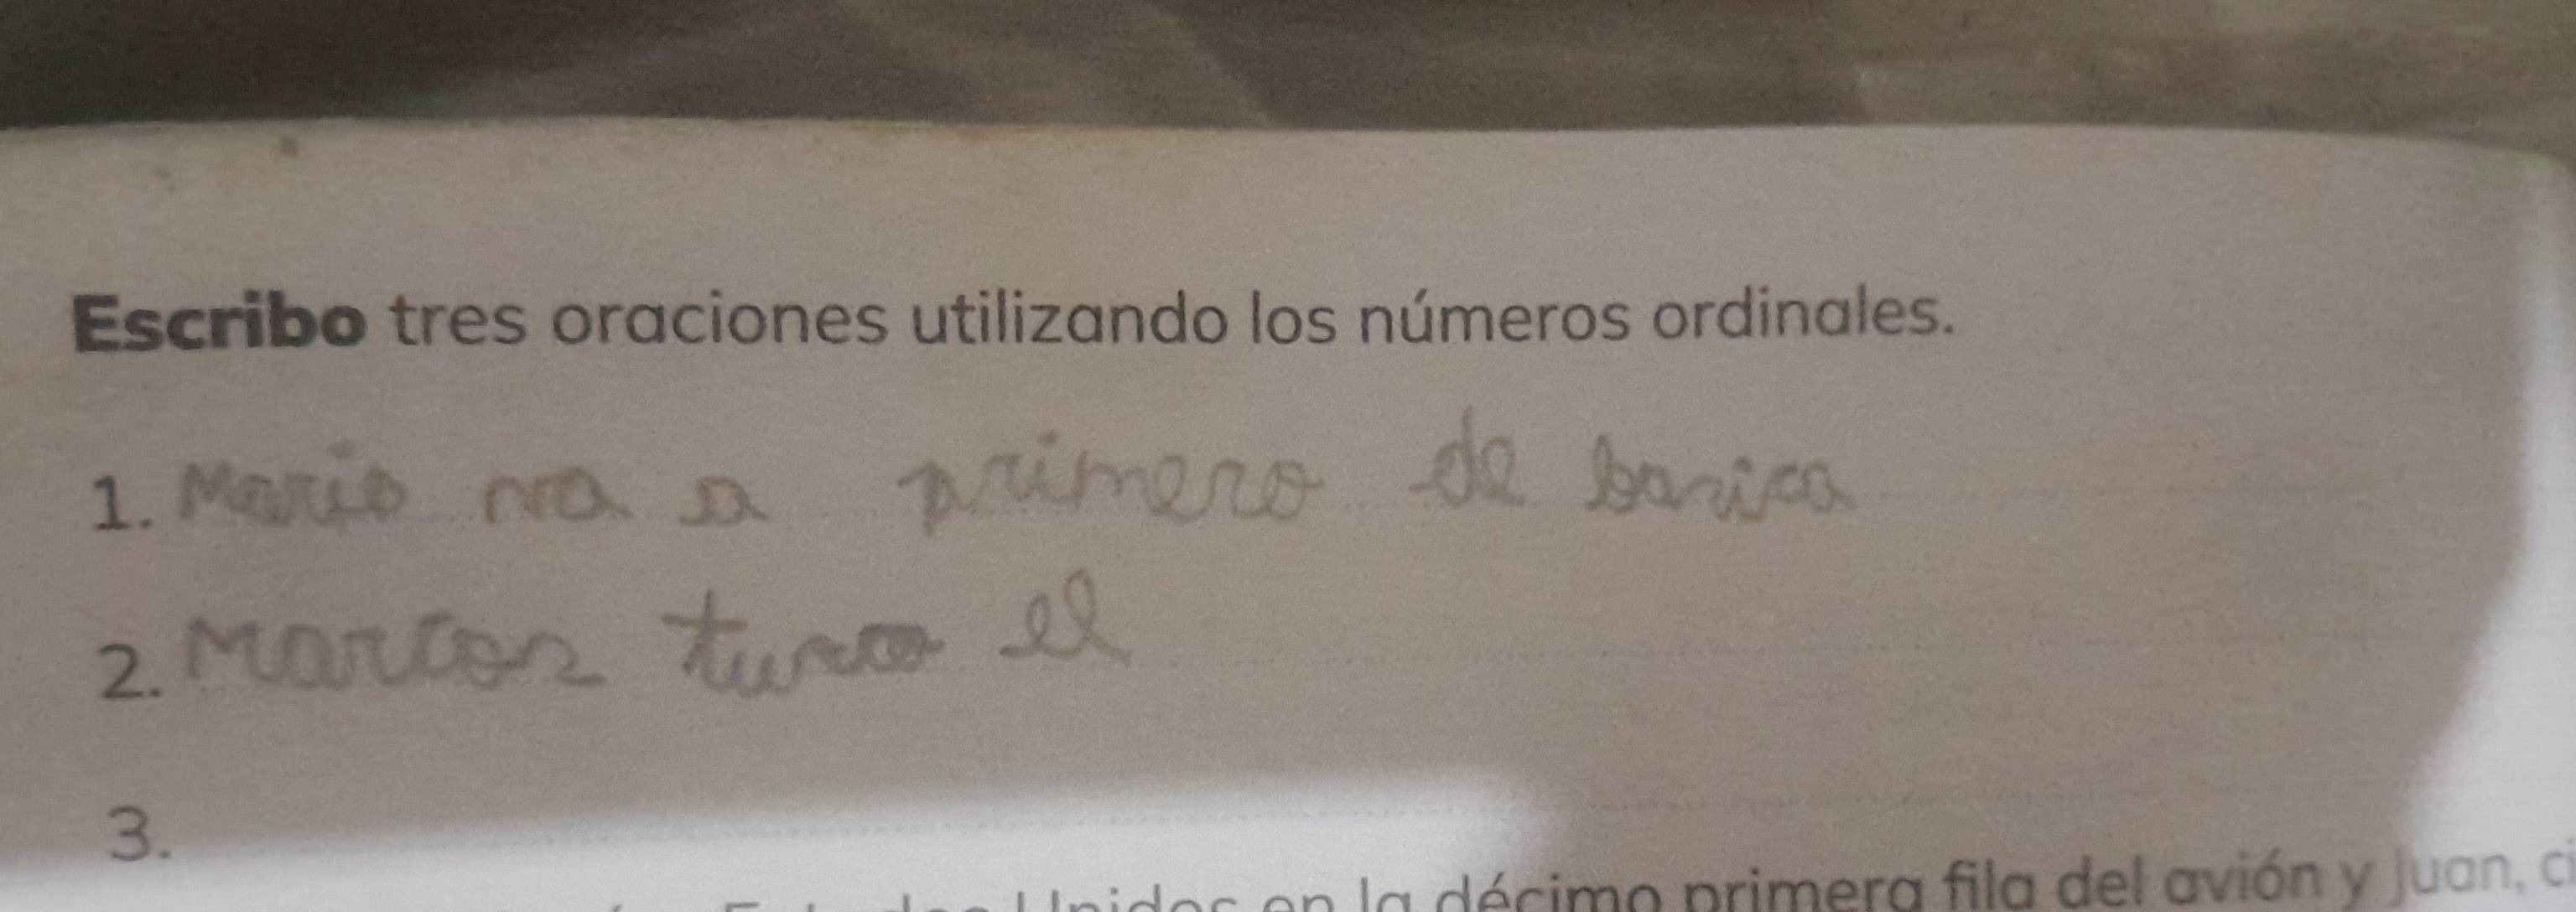 Escribo tres oraciones utilizando los números ordinales.
1. Mario va a primero de basica
2. Marcos tuvo el
3.
Unidos en la décimo primera fila del avión y Juan,